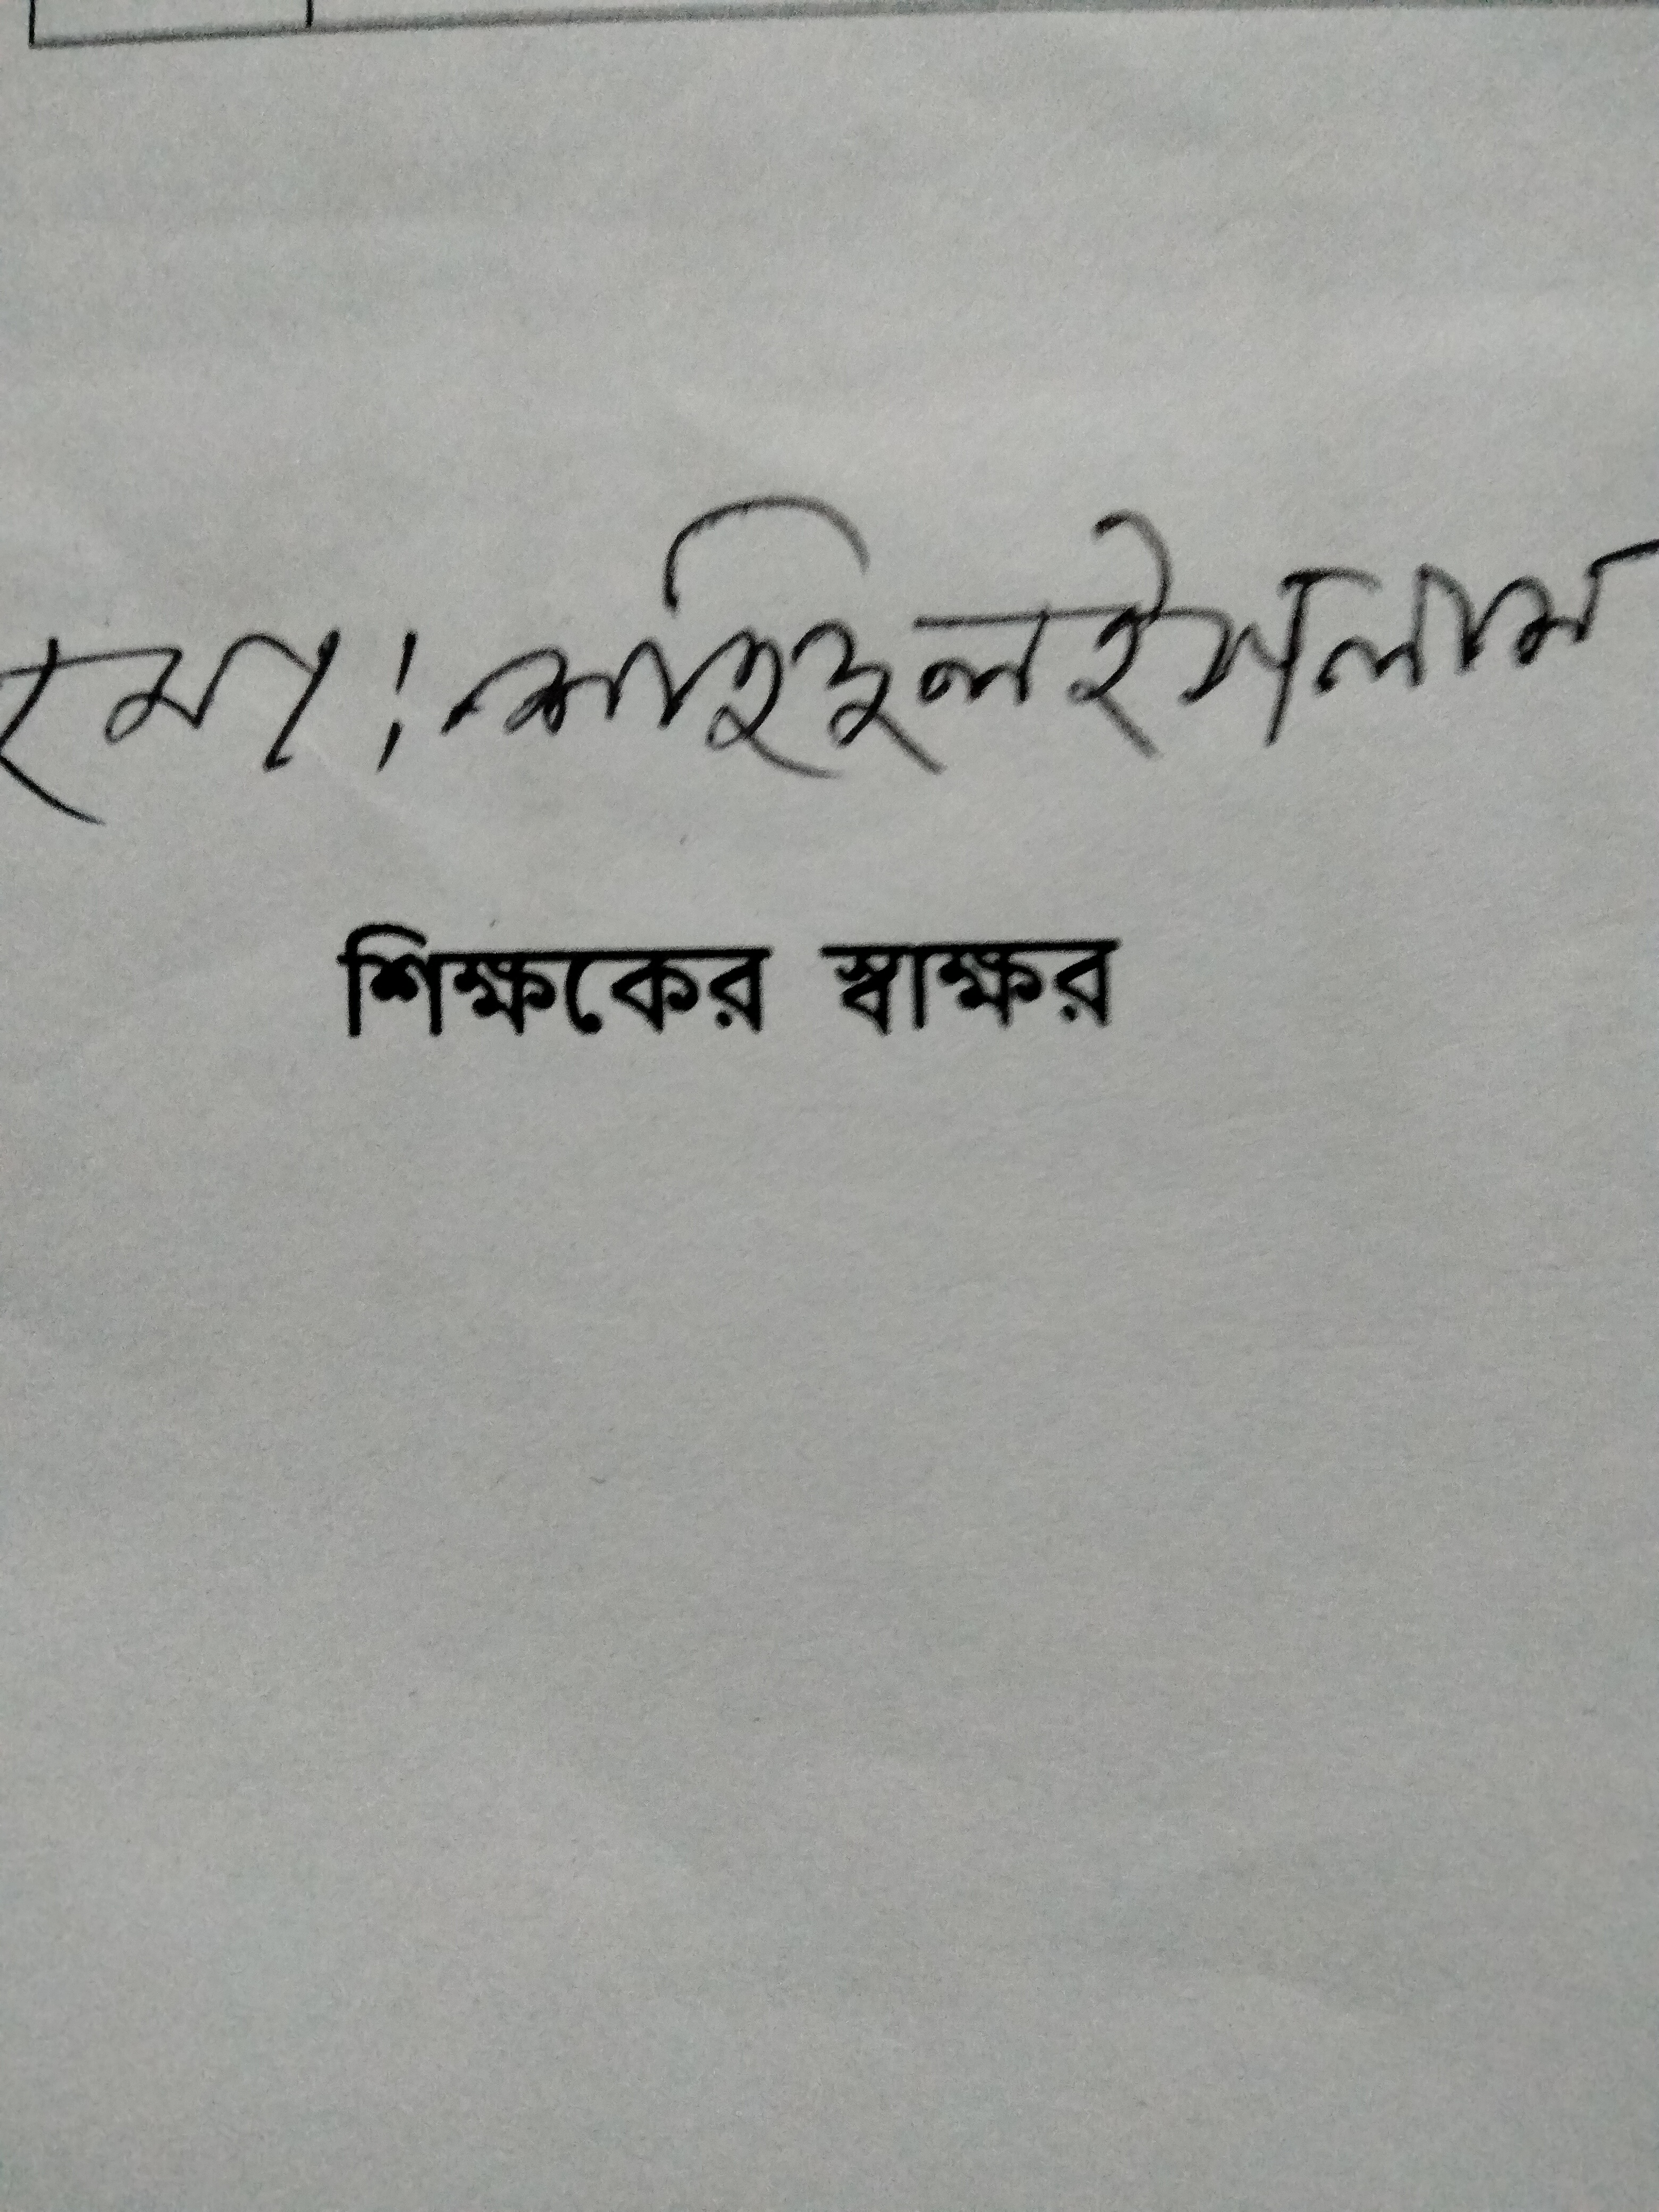 মোঃ শহিদুল ইসলাম
শিক্ষকের স্বাক্ষর